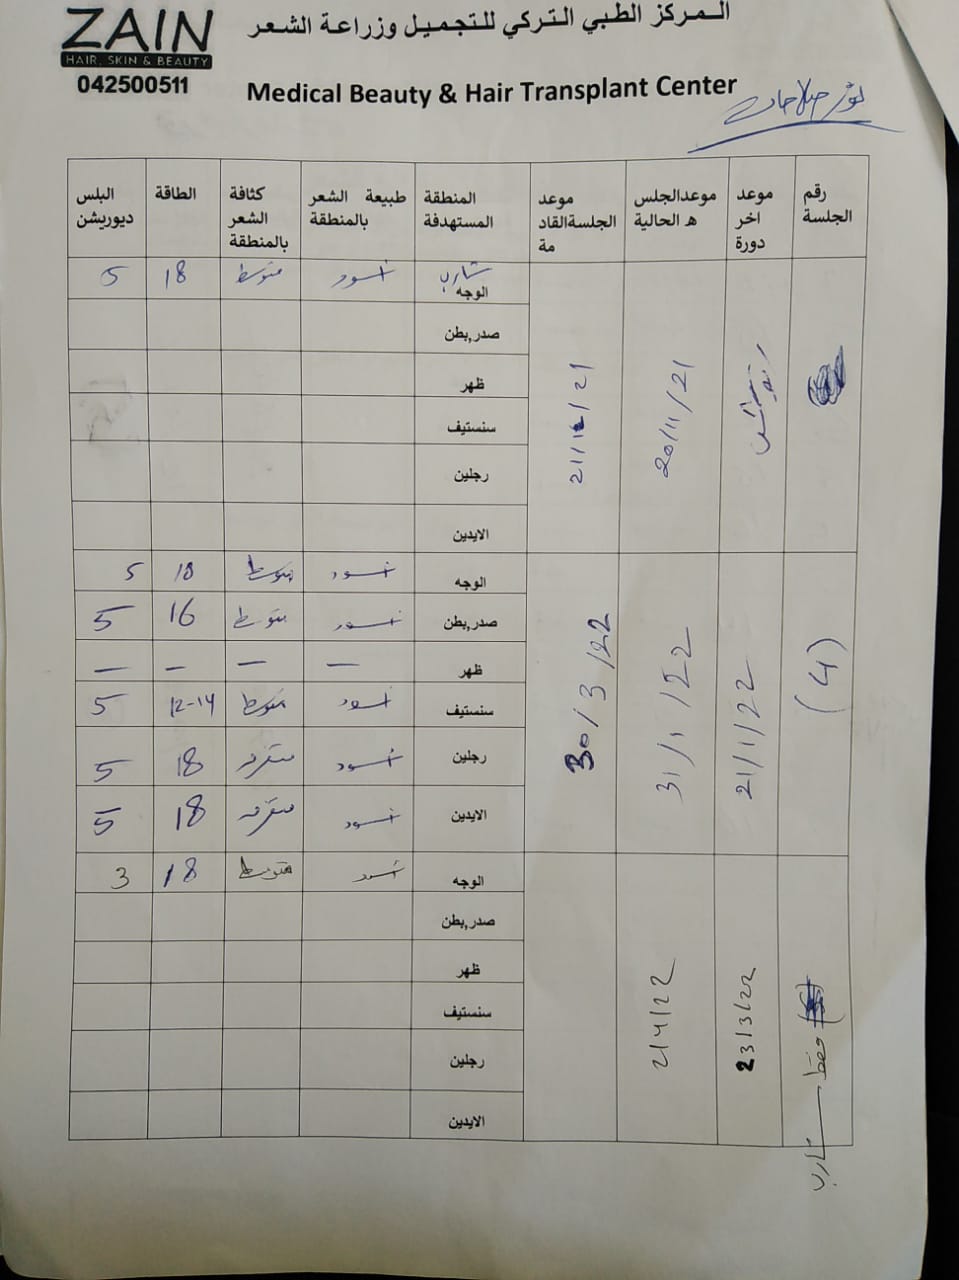 ZAIN
HAIR, SKIN & BEAUTY
042500511
المركز الطبي التركي للتجميل وزراعة الشعر
Medical Beauty & Hair Transplant Center
رقم الجلسة
موعد اخر دورة
موعدالجلس ه الحالية
موعد الجلسةالقاد مة
المنطقة المستهدفة
طبيعة الشعر بالمنطقة
كثافة الشعر بالمنطقة
الطاقة
البلس ديوريشن
20/11/21
21/12/21
شارب
الوجه اسود متوسط 18 5
صدر,بطن
ظهر
سنستيف
رجلين
الايدين
(4)
21/1/22
31/1/22
30/3/22
الوجه اسود متوسط 18 5
صدر,بطن اسود متوسط 16 5
ظهر — — — —
سنستيف اسود متوسط 12-14 5
رجلين اسود متفرقه 18 5
الايدين اسود متفرقه 18 5
فقط شارب
23/3/22
2/4/22
الوجه اسود متوسط 18 3
صدر,بطن
ظهر
سنستيف
رجلين
الايدين